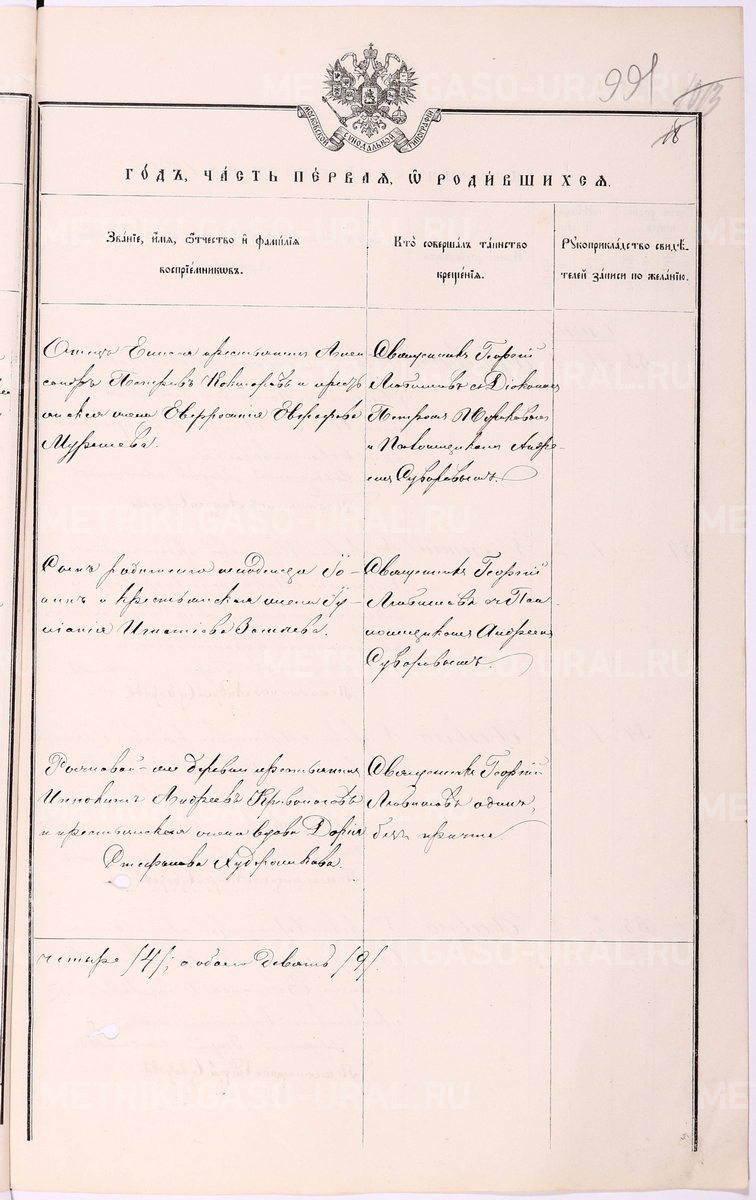 991 1013
18
МОСКОВСКОЙ СѴНОДАЛЬНОЙ ТИПОГРАФІИ
ГО́ДЪ, ЧА́СТЬ ПЕ́РВАЯ, Ѽ РОДИ́ВШИХСЯ.
Зва́нїе, и҆́мѧ, ѻ҆́тчество и҆ фами́лїѧ
воспрїе́мникѡвъ.
Кто̀ соверша́лъ та́инство
креще́нїѧ.
Рꙋкоприкла́дство свидѣ́-
телей за́писи по жела́нїю.
крестьянинъ Алек
сандръ Петровъ и кресть
янская жена Евфросинія
Священникъ Георгій
Любимовъ съ Діакономъ
Петромъ
и Псаломщикомъ Андре-
емъ Суворовымъ.
Сынъ Іо-
аннъ и крестьянская жена Іу
ліанія Игнатіева
Священникъ Георгій
Любимовъ съ Пса
ломщикомъ Андреемъ
Суворовымъ.
же деревни крестьянинъ
Иннокентій Андреевъ Кривоноговъ
и крестьянская жена вдова Дарія
Стефанова
Священникъ Георгій
Любимовъ одинъ,
безъ причта
четыре /4/; а обоего девять /9/.
METRIKI.GASO-URAL.RU